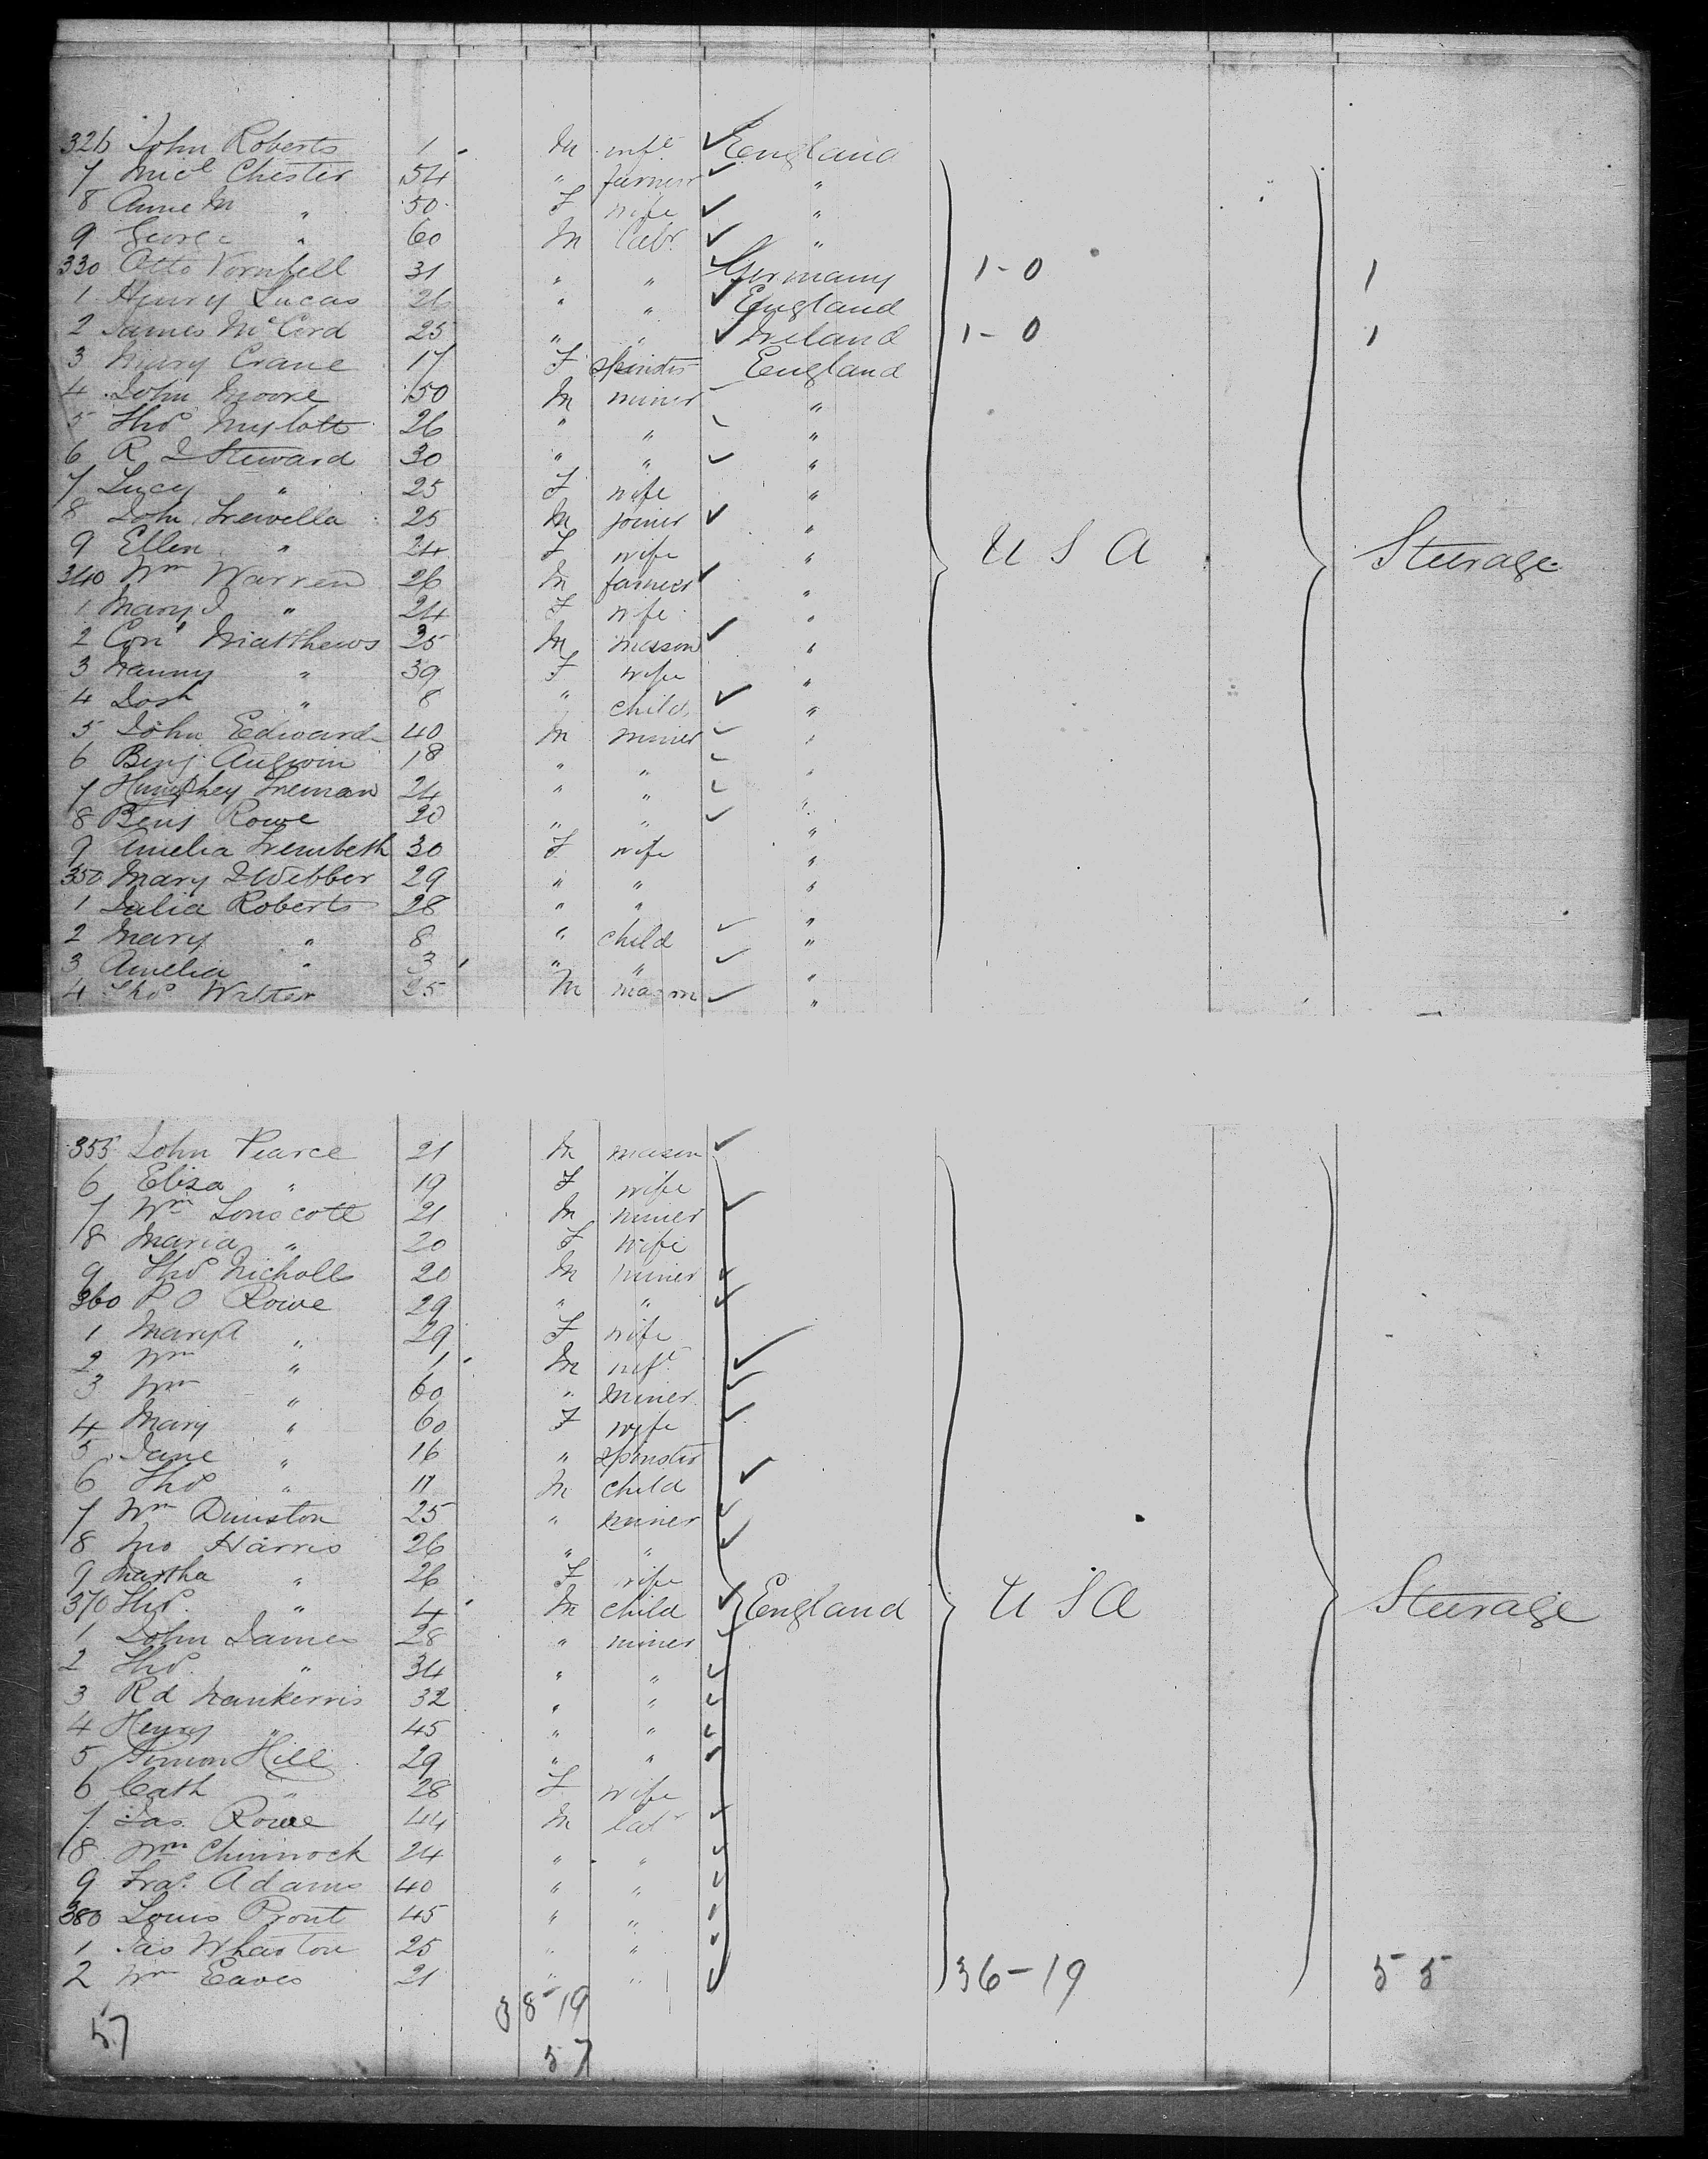 326 John Roberts 1 M inft England
7 Micl Chester 54 " farmer "
8 Anne M " 50 F wife "
9 George " 60 M Labr "
330 Otto Vornfell 31 " " Germany 1-0 1
1 Henry Lucas 26 " " England
2 James McCord 25 " " Ireland 1-0 1
3 Mary Crane 17 F spinstr England
4 John Moore 50 M miner "
5 Thos Mylott 26 " " "
6 R J Steward 30 " " "
7 Lucy " 25 F wife "
8 John Trewella 25 M joiner " U S A Steerage
9 Ellen " 24 F wife "
340 Wm Warren 26 M farmer "
1 Mary J " 24 F wife "
2 Cons Matthews 35 M mason "
3 Nanny " 39 F wife "
4 " 8 " child "
5 John Edwards 40 M miner "
6 Benj Angwin 18 " " "
7 Humphey Treman 24 " " "
8 Benj Rowe 20 " " "
9 Amelia Trembeth 30 F wife "
350 Mary J Webber 29 " " "
1 Julia Roberts 28 " " "
2 Mary " 8 " child "
3 Amelia " 3 " " "
4 Thos Walter 25 M mason "
355 John Pearce 21 M mason
6 Eliza " 19 F wife
7 Wm Lonscott 21 M miner
8 Maria " 20 F wife
9 Thos Nicholls 20 M miner
360 P O Rowe 29 " "
1 Mary A " 29 F wife
2 Wm " 1 M inft
3 Wm " 60 " miner
4 Mary " 60 F wife
5 Jane " 16 " spinster
6 Thos " 11 M child
7 Wm Dunston 25 " miner
8 Jno Harris 26 " "
9 Martha " 26 F wife
370 Thos " 4 M child England U S A Steerage
1 John James 28 " miner
2 Thos " 34 " "
3 Rd Nankervis 32 " "
4 Henry " 45 " "
5 Simon Hill 29 " "
6 Cath " 28 F wife
7 Jas Rowe 44 M labr
8 Wm Chinnock 24 " "
9 Fras Adams 40 " "
380 Louis Prout 45 " "
1 Jas Wharton 25 " "
2 Wm Eaves 21 " " 36-19 55
38-19
57 57